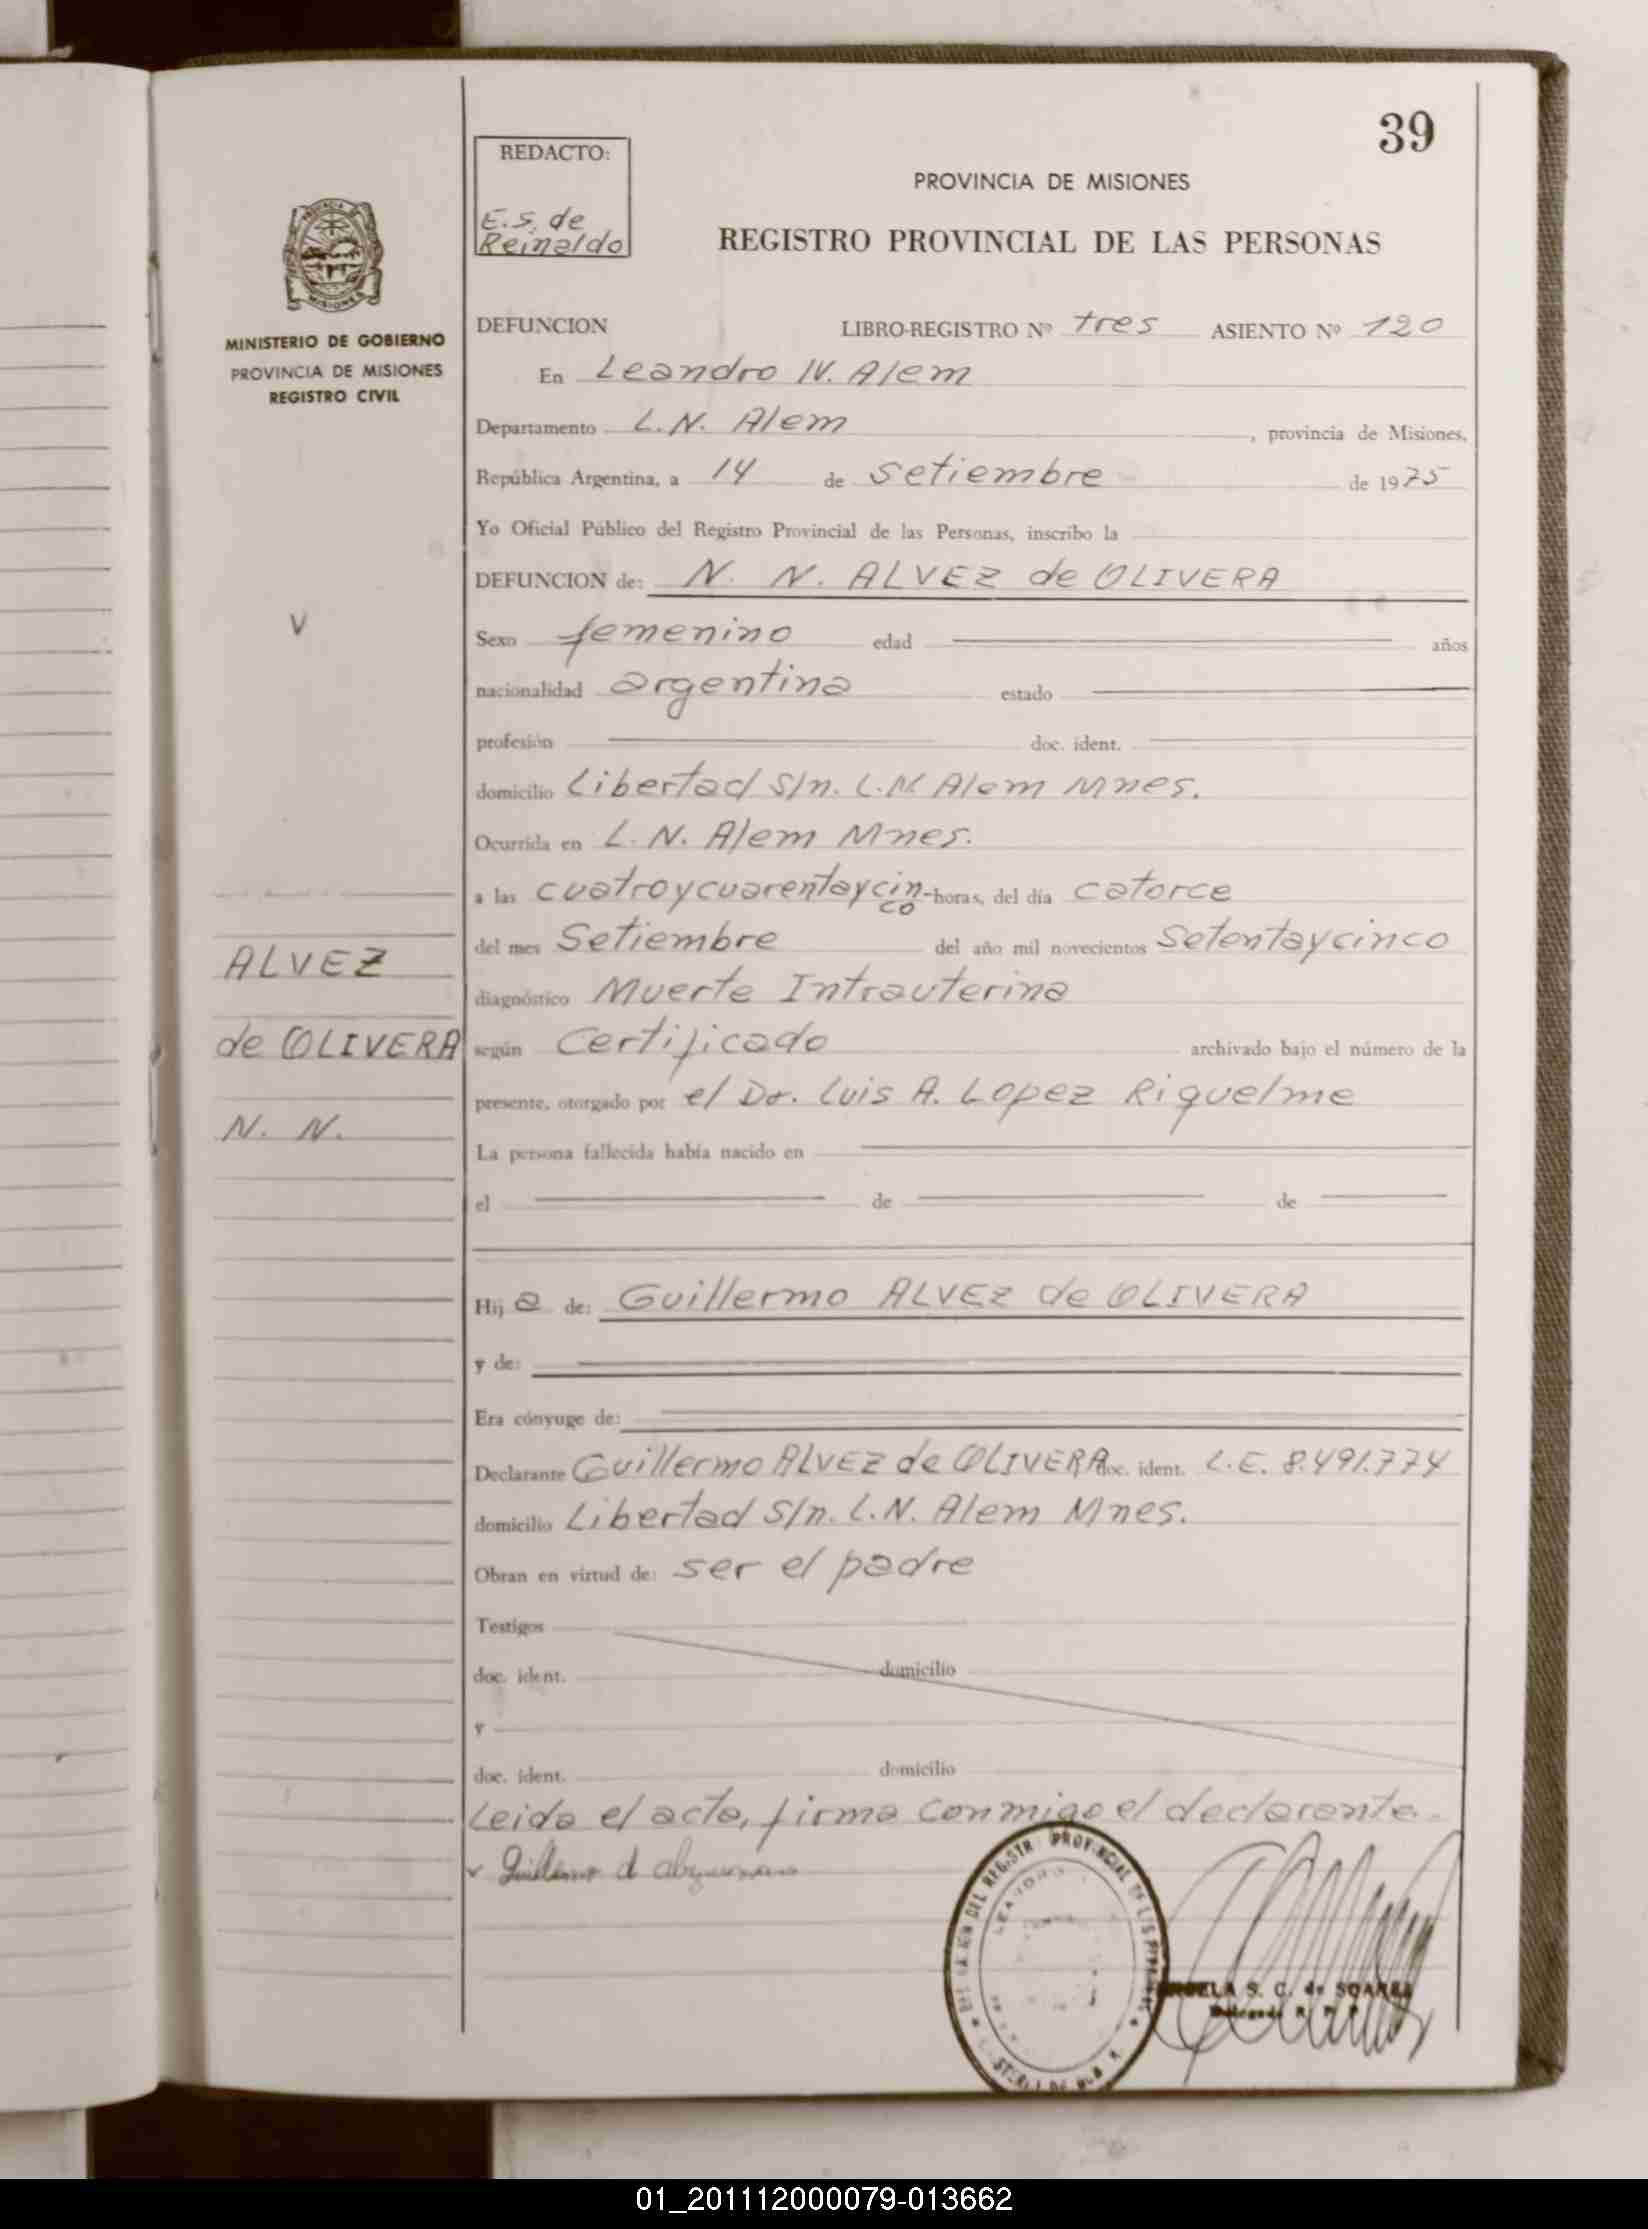 39
REDACTO:
E.S. de
Reinaldo
PROVINCIA DE MISIONES
REGISTRO PROVINCIAL DE LAS PERSONAS
MINISTERIO DE GOBIERNO
PROVINCIA DE MISIONES
REGISTRO CIVIL
DEFUNCION LIBRO-REGISTRO Nº tres ASIENTO Nº 120
En Leandro N. Alem
Departamento L.N. Alem, provincia de Misiones,
República Argentina, a 14 de Setiembre de 1975
Yo Oficial Público del Registro Provincial de las Personas, inscribo la
DEFUNCION de: N. N. ALVEZ de OLIVERA
V
Sexo femenino edad años
nacionalidad argentina estado
profesión doc. ident.
domicilio Libertad S/n. L.N Alem Mnes.
Ocurrida en L. N. Alem Mnes.
a las cuatroycuarentaycinco horas, del día catorce
del mes Setiembre del año mil novecientos Setentaycinco
diagnóstico Muerte Intrauterina
según Certificado archivado bajo el número de la
presente, otorgado por el Dr. Luis A. Lopez Riquelme
La persona fallecida había nacido en
el de de
ALVEZ
de OLIVERA
N. N.
Hija de: Guillermo ALVEZ de OLIVERA
y de:
Era cónyuge de:
Declarante Guillermo ALVEZ de OLIVERA doc. ident. L.E. 8.491.774
domicilio Libertad S/n. L.N. Alem Mnes.
Obran en virtud de: ser el padre
Testigos
doc. ident. domicilio
y
doc. ident. domicilio
Leida el acta, firma conmigo el declarante.
Guillermo d
DEL REGISTR PROVINCIAL DE LAS
LEANDRO
S. C. de SOAREZ
01_201112000079-013662